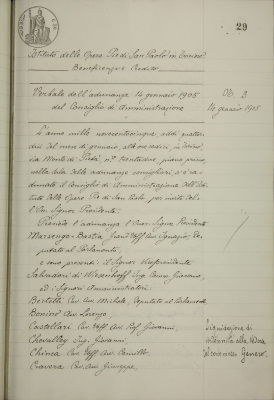 29
Istituto delle Opere Pie di San Paolo in Torino
Beneficenza e Credito
Verbale dell'adunanza 14 gennaio 1905
del Consiglio di Amministrazione
N. 2
14 gennaio 1905
L'anno mille novecentocinque, addì quattor
dici del mese di gennaio, alle ore sedici, in Torino,
via Monte di Pietà, n° trentadue, piano primo,
nella sala delle adunanze consigliari, si è ra
dunato il Consiglio di Amministrazione dell'Isti
tuto delle Opere Pie di San Paolo per invito del
l'On. Signor Presidente.
Presiede l'adunanza l'Onor. Signor Presidente
Marsengo-Bastia Gr. Uff. Avv. Ignazio, De
putato al Parlamento,
e sono presenti il Signor Vicepresidente
Salvadori di Wiesenhoff Ing. Comm. Giovanni,
ed i Signori Amministratori:
Bertetti Cav. Avv. Michele, Deputato al Parlamento
Bonino Avv. Lorenzo,
Castellari Cav. Uff. Avv. Prof. Giovanni,
Chevalley Ing. Giovanni,
Chinea Cav. Uff. Avv. Camillo,
Cravera Cav. Avv. Giuseppe,
Liquidazione di